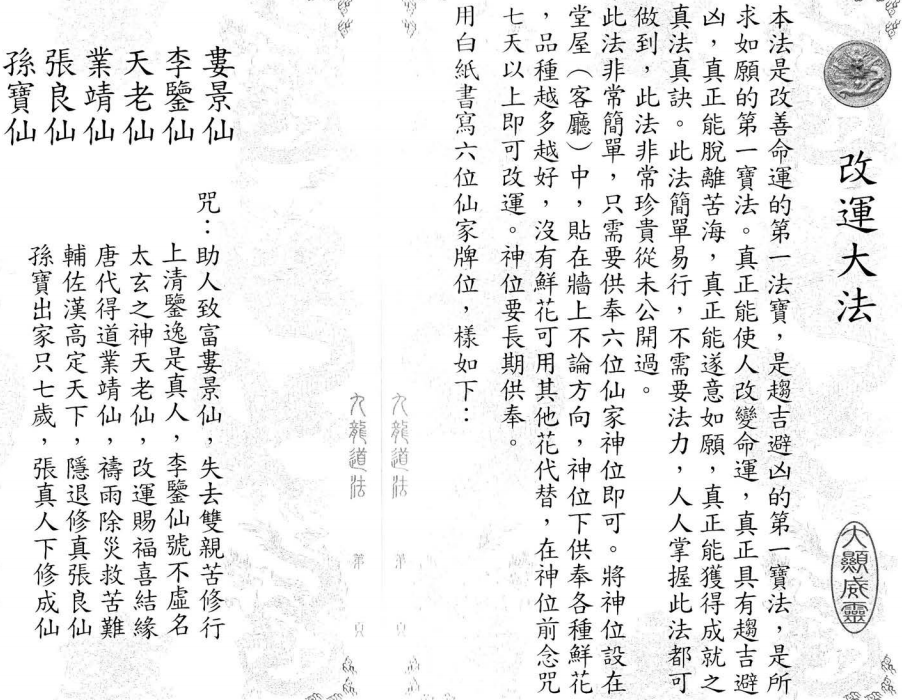 改運大法
大顯威靈
本法是改善命運的第一法寶，是趨吉避凶的第一寶法，是所
求如願的第一寶法。真正能使人改變命運，真正具有趨吉避
凶，真正能脫離苦海，真正能遂意如願，真正能獲得成就之
真法真訣。此法簡單易行，不需要法力，人人掌握此法都可
做到，此法非常珍貴從未公開過。
此法非常簡單，只需要供奉六位仙家神位即可。將神位設在
堂屋（客廳）中，貼在牆上不論方向，神位下供奉各種鮮花
，品種越多越好，沒有鮮花可用其他花代替，在神位前念咒
七天以上即可改運。神位要長期供奉。
用白紙書寫六位仙家牌位，樣如下：
九龍道法
第
頁
九龍道法
第
頁
婁景仙
李鑒仙
天老仙
業靖仙
張良仙
孫寶仙
咒：助人致富婁景仙，失去雙親苦修行
上清鑒逸是真人，李鑒仙號不虛名
太玄之神天老仙，改運賜福喜結緣
唐代得道業靖仙，禱雨除災救苦難
輔佐漢高定天下，隱退修真張良仙
孫寶出家只七歲，張真人下修成仙